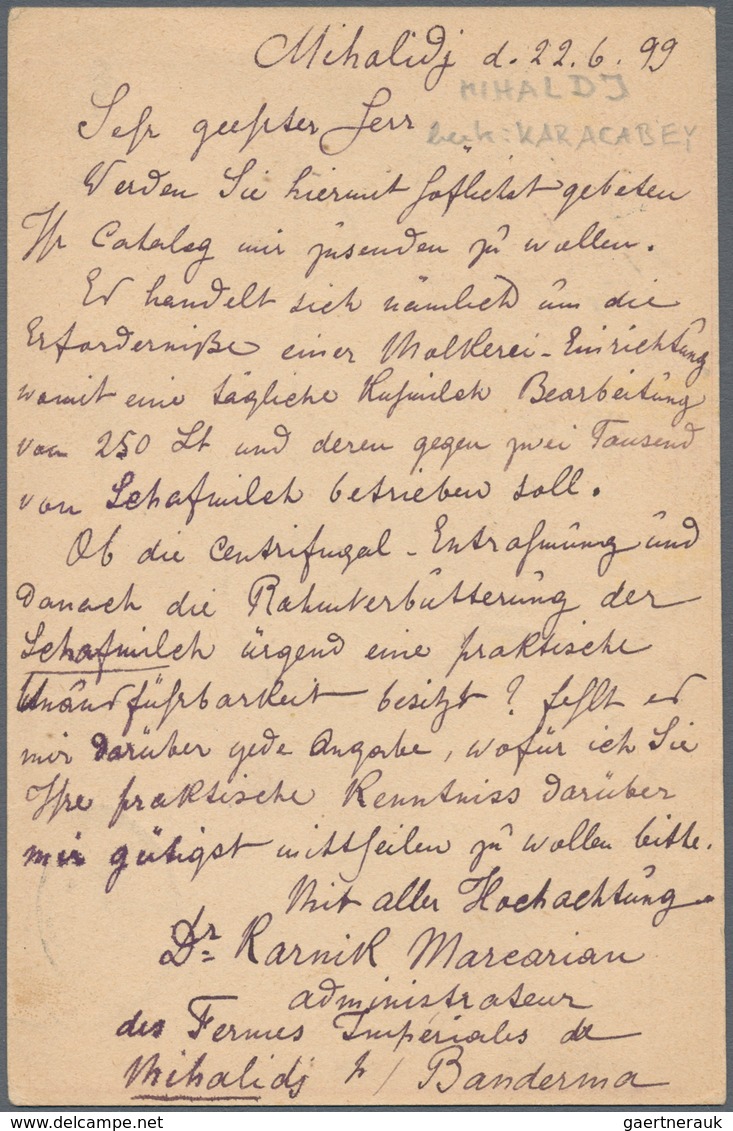 Mihalidj d. 22.6.99
MIHALDJ
KARACABEY
Sehr geehrter Herr
Werden Sie hiermit höflichst gebeten
Ihr Catalog mir zusenden zu wollen.
Es handelt sich nämlich um die
Erforderniße einer Molkerei-Einrichtung
womit eine tägliche Kuhmilch Bearbeitung
von 250 Lt und deren gegen zwei Tausend
von Schafmilch betrieben soll.
Ob die Centrifugal-Entrahmung und
danach die Rahmverbutterung der
Schafmilch ürgend eine praktische
besitzt? fehlt es
mir darüber jede Angabe, wofür ich Sie
Ihre praktische Kenntniss darüber
mir gütigst mittheilen zu wollen bitte.
Mit aller Hochachtung
Dr Karnik Marcarian
administrateur
des Fermes Impériales de
Mihalidj p/ Banderma
gaertnerauk